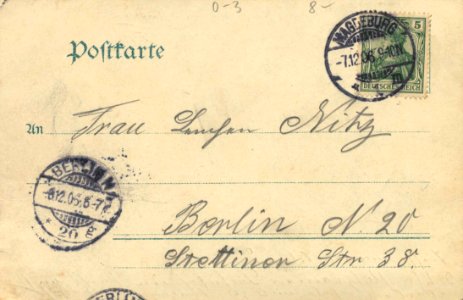 0-3 8-
Postkarte
MAGDEBURG
-7.12.06.9-10N
5
DEUTSCHES REICH
An Frau Lenchen Nitz
BERLIN N
8.12.06.6-7V
20 g
Berlin N. 20
Stettiner Str 38.
BERLIN